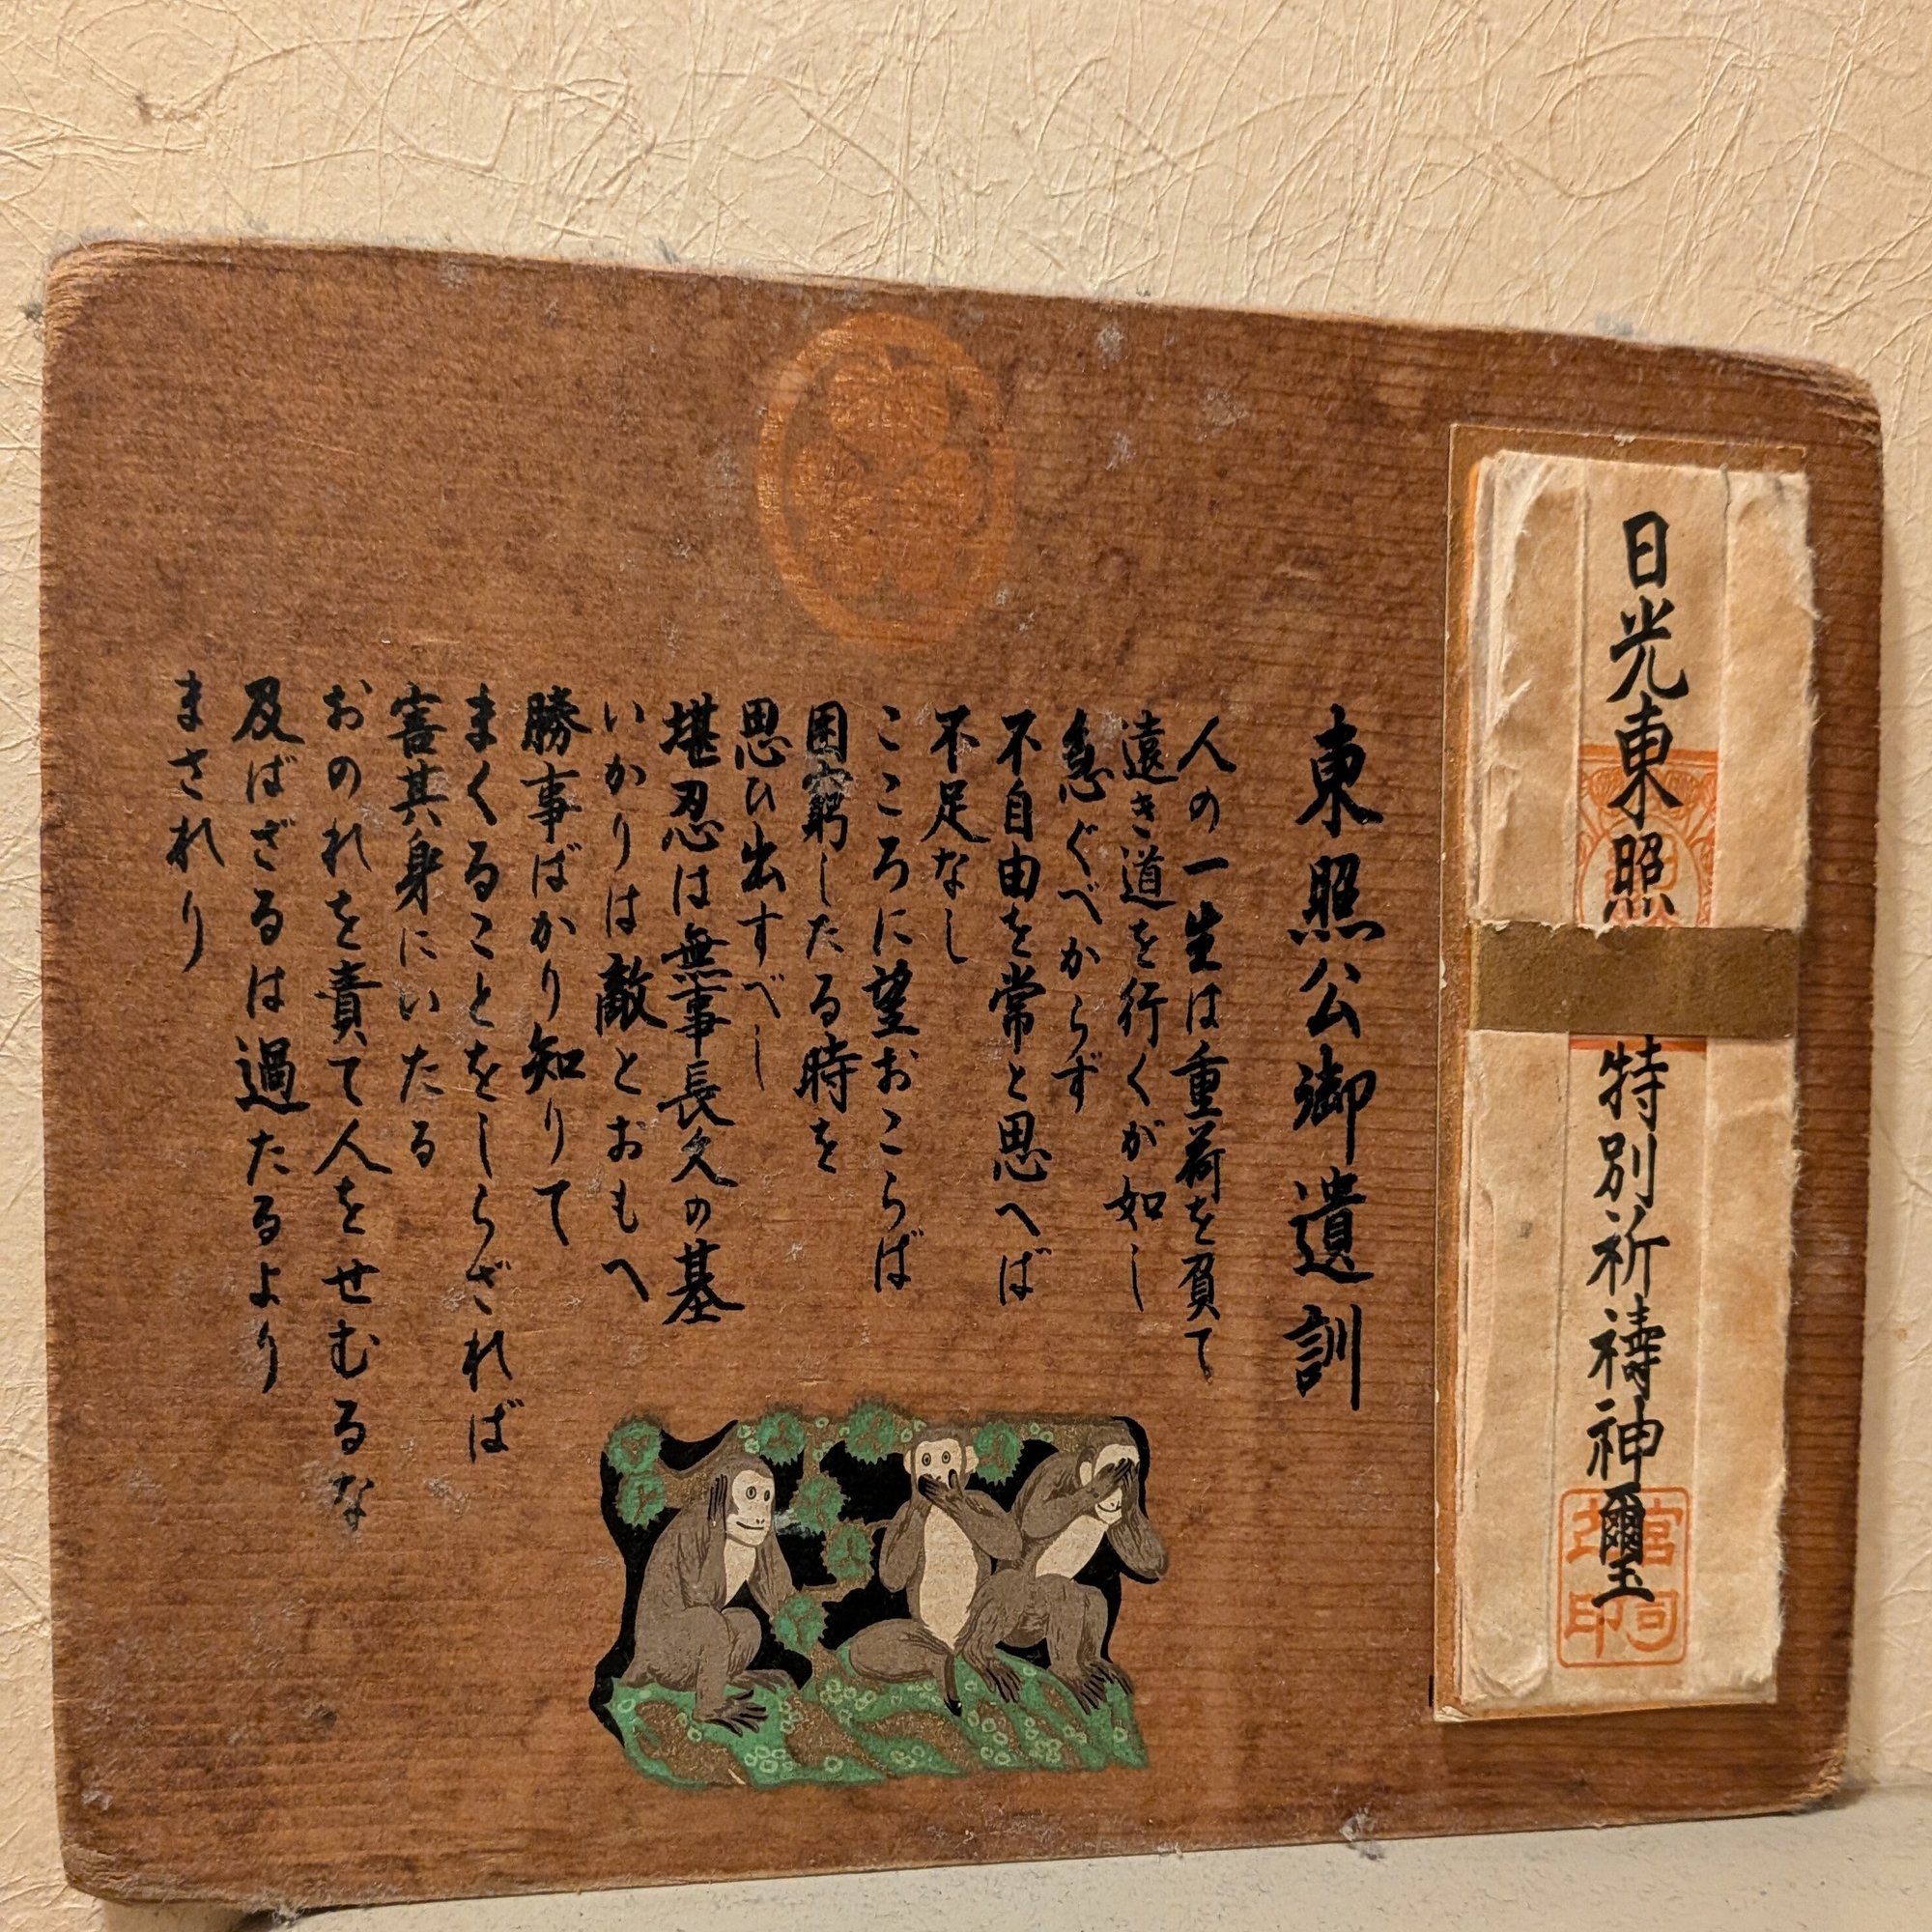 日光東照
特別祈祷神璽
宮司
印
東照公御遺訓
人の一生は重荷を負て
遠き道を行くが如し
急ぐべからず
不自由を常と思へば
不足なし
こころに望おこらば
困窮したる時を
思ひ出すべし
堪忍は無事長久の基
いかりは敵とおもへ
勝事ばかり知りて
まくることをしらざれば
害其身にいたる
おのれを責て人をせむるな
及ばざるは過たるより
まされり